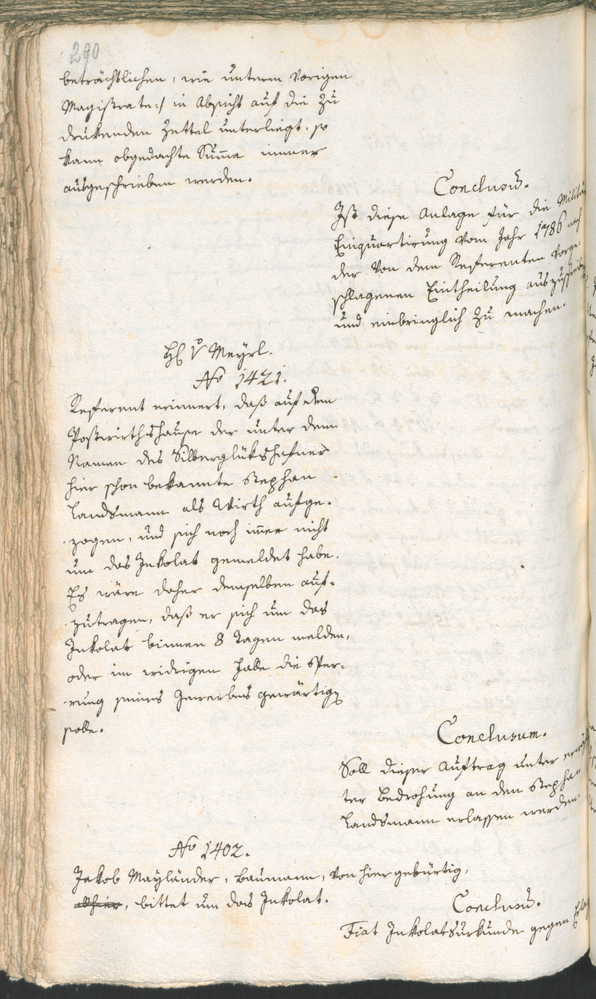 290
beträchtlichen, wie unterm vorigen
Magistrate :/ in Absicht auf die zu
drükenden Zettel unterliegt. so
kann obgedachte Summe immer
ausgeschrieben werden.
Conclusum.
Ist diese Anlage für die Militär
Einquartirung vom Jahr 1786 nach
der von dem Referenten vorge
schlagenen Eintheilung auszuschreiben
und einbringlich zu machen.
H V Meyrl.
No 1421.
Referent erinnert, daß auf dem
Postwirthshause der unter dem
Namen des Silberglükshafner
hier schon bekannte Stephan
Landsmann als Wirth aufge-
zogen, und sich noch immer nicht
um das Inkolat gemeldet habe.
Es wäre daher demselben auf-
zutragen, daß er sich um das
Inkolat binnen 8 Tagen melden,
oder im widrigen Falle die Sper-
rung seines Gewerbes gewärtigen
solle.
Conclusum.
Soll dieser Auftrag unter
ter Bedrohung an den Stephan
Landsmann erlassen werden.
No 1402.
Jakob Mayländer, Baumann, von hier gebürtig,
allhier, bittet um das Inkolat.
Conclusum.
Fiat Inkolatsurkunde gegen